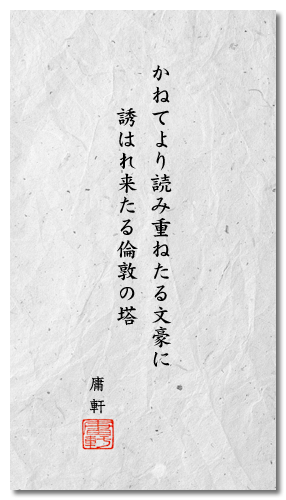 かねてより読み重ねたる文豪に
誘はれ来たる倫敦の塔
庸軒
庸軒